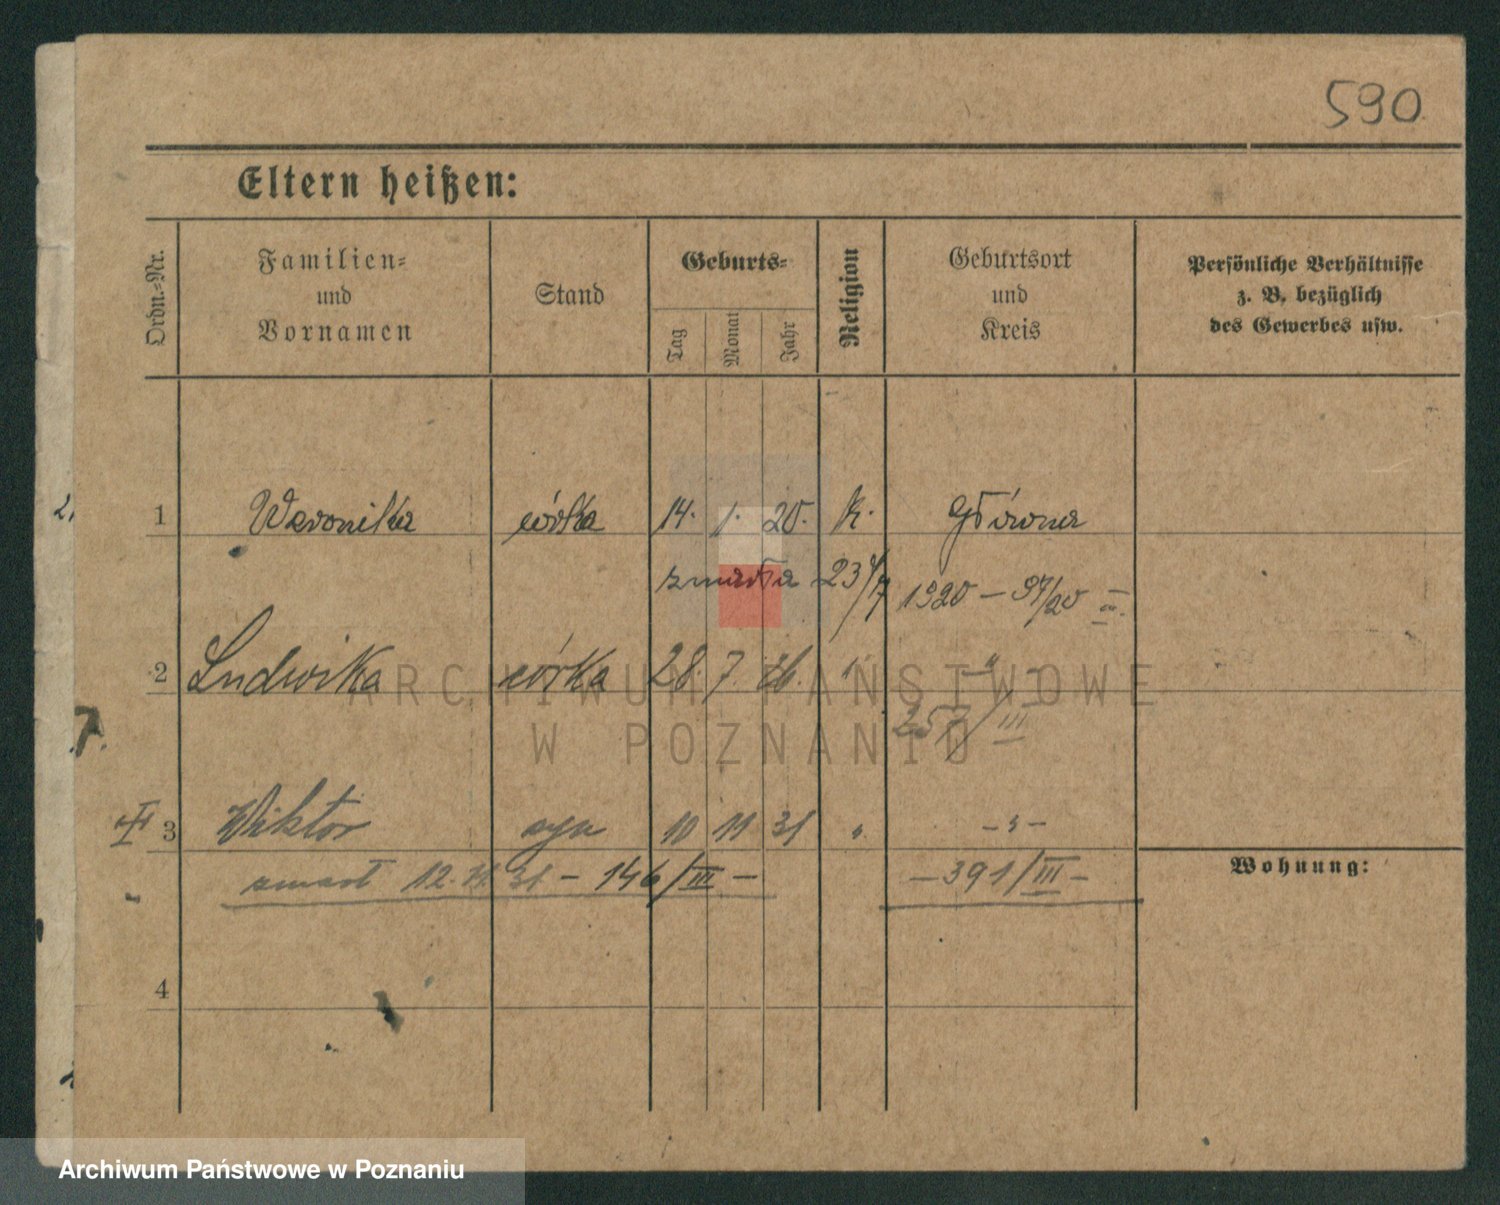 590
Eltern heißen:
Ordn.-Nr.
Familien-
und
Vornamen
Stand
Geburts-
Tag
Monat
Jahr
Religion
Geburtsort
und
Kreis
Persönliche Verhältnisse
z. B. bezüglich
des Gewerbes usw.
1 Weronika córka 14. 1. 20. k. Główna
zmarła 23/7 1920 – 97/20 II.
2 Ludwika córka 28. 7. " – " –
257/III
7.
3 Wiktor syn 10 11 31 " – " –
zmarł 12.11.31 – 146/III – – 391/III –
Wohnung:
4
ARCHIWUM PAŃSTWOWE
W POZNANIU
Archiwum Państwowe w Poznaniu